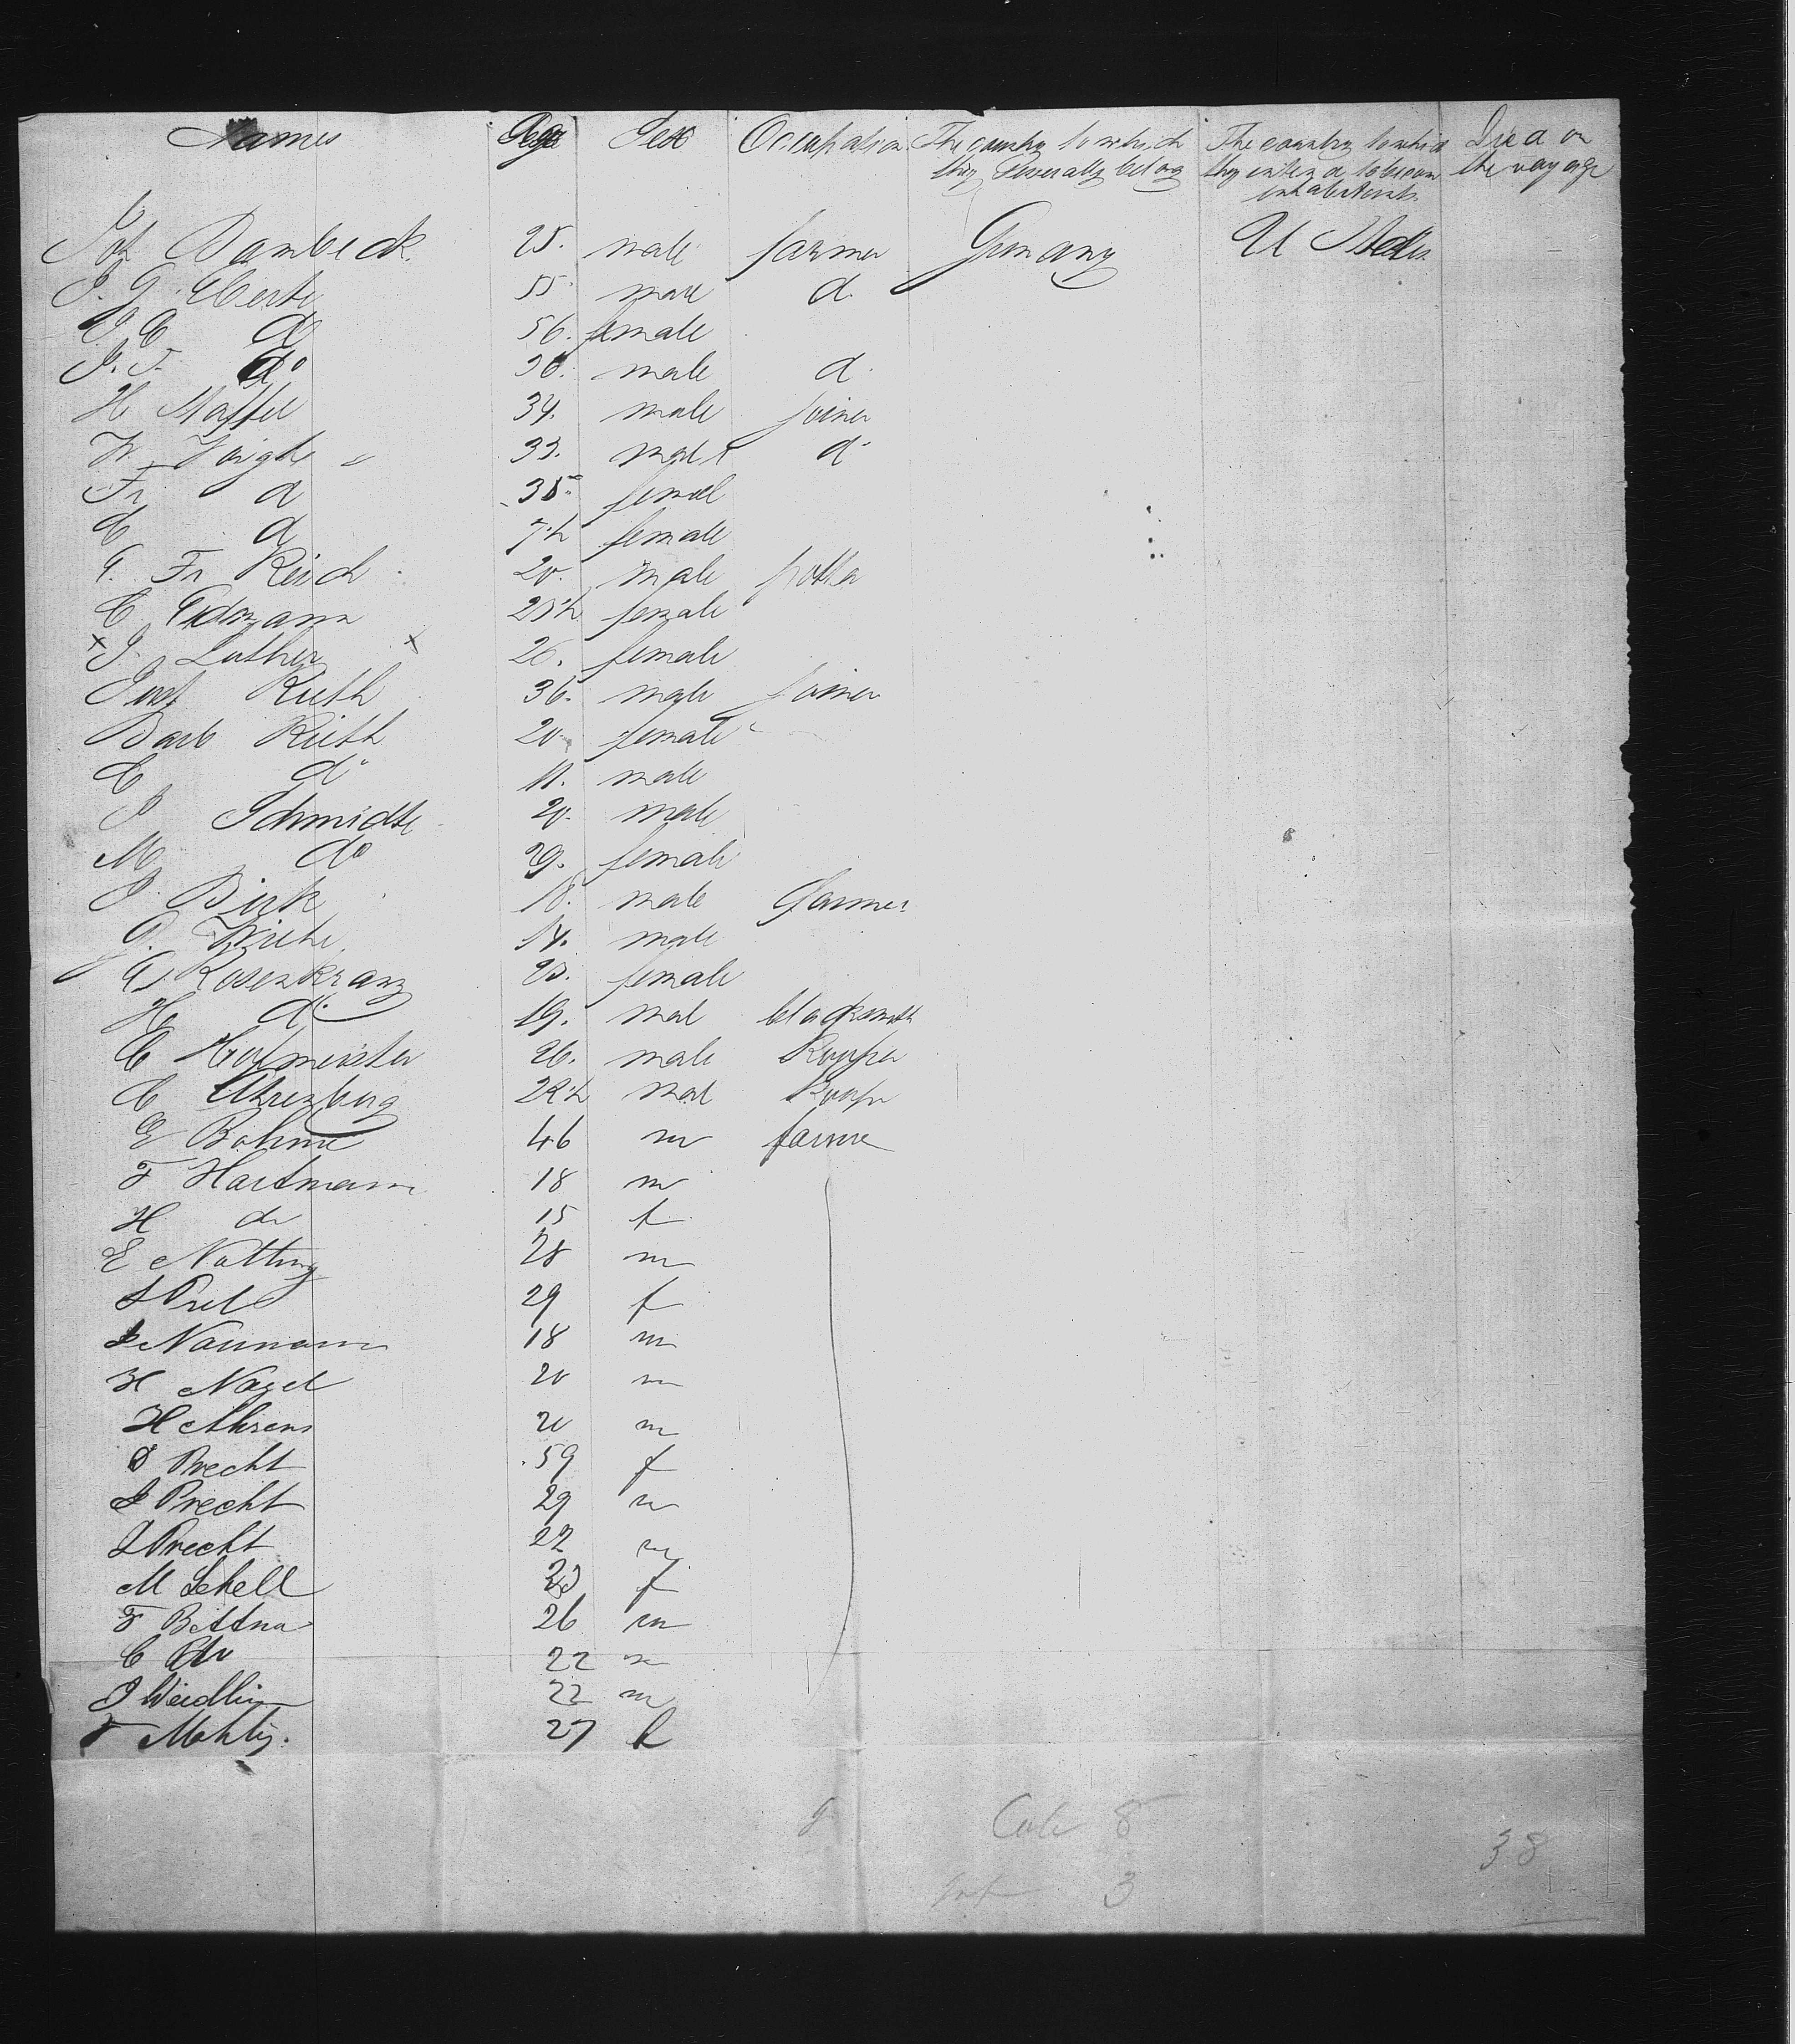 Names Age Sex Occupation The country to which they severally belong The country to which they intend to become inhabitants Died on the voyage
Joh Dambeck 25. male farmer Germany U States
J. G. Eberte 55 male d.
J C d 56. female
J. F. do 30. male d.
H Staffel 34. male joiner
W. Voigte 33. male d
Fr d 35. femal
C d 7½ female
G. Fr Reich 20. male potter
C Erdmann 25½ female
x J. Luther x 26. female
Jost Rieth 36. male joiner
Barb Rieth 20. female
C do 11. male
J Schmidt 20. male
M do 29. female
J. Birk 18. male farmer
G. Wiche 14. male
G Rosenkranz 23. female
H do 19. mal blacksmith
C Hofmeister 26. male Kooper
C Ahrenberg 22½ mal Koopr
G Bohme 46 m farmer
F Hartmann 18 m
H do 15 f
E Notting 28 m
J Prel 29 f
J Naumann 18 m
H Nagel 20 m
H Ahrens 20 m
D Precht 59 f
J Precht 29 m
J Precht 22 m
M Schell 23 f
F Bettna 26 m
C do 22 m
J Weidlin 22 m
F Mohlig. 27 f
8
3
38